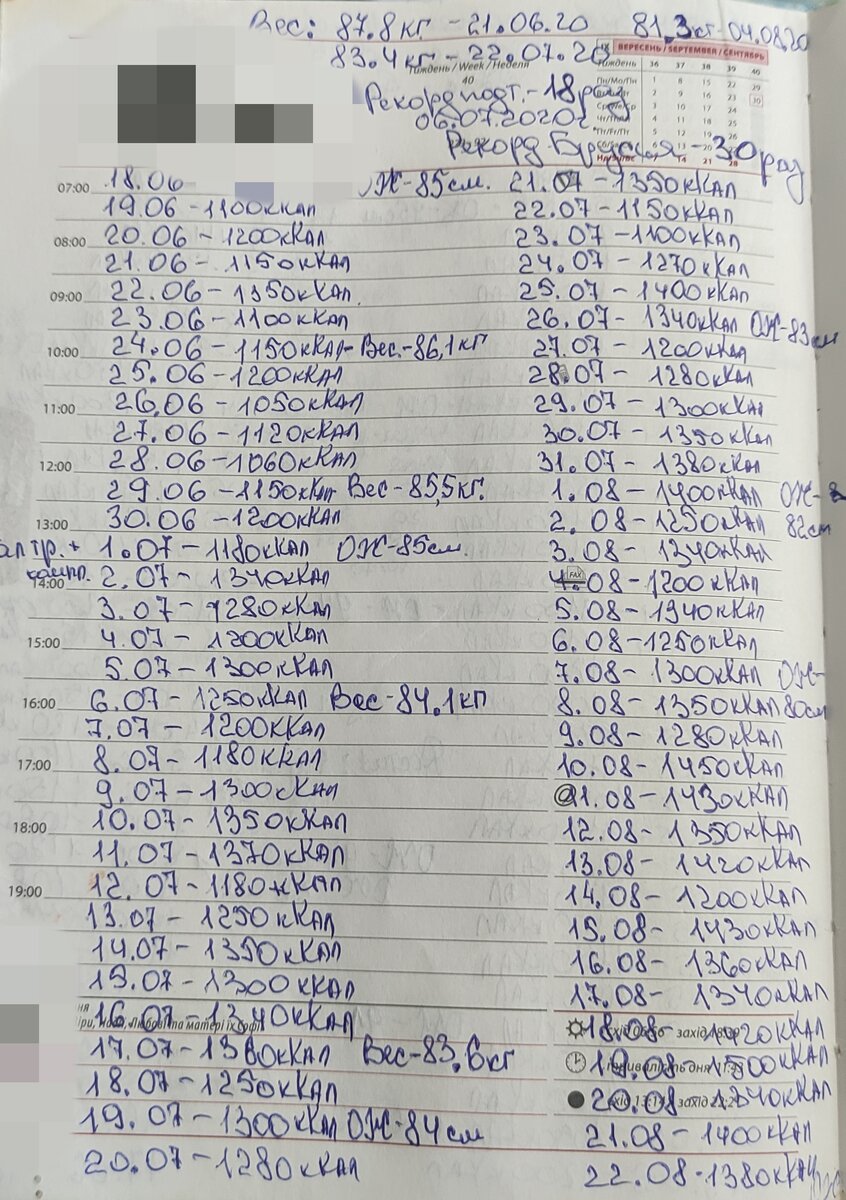 Вес: 87.8кг - 21.06.20 81.3кг-04.08.20
83.4кг. - 22.07.20
ВЕРЕСЕНЬ / SEPTEMBER / СЕНТЯБРЬ
Тиждень / Week / Неделя
40
Рекорд подт. - 18 раз
06.07.2020г.
Рекорд Брусья - 30 раз
07:00 18.06 ОЖ-85см.
19.06 - 1100ккал
08:00 20.06 - 1200ккал
21.06 - 1150ккал
22.06 - 1350ккал
09:00 23.06 - 1100ккал
10:00 24.06 - 1150ккал- Вес.- 86,1кг
25.06 - 1200ккал
11:00 26.06 - 1050ккал
27.06 - 1120ккал
12:00 28.06 - 1060ккал
29.06 - 1150ккал Вес - 85,5кг.
13:00 30.06 - 1200ккал
1.07 - 1180ккал ОЖ-85см.
14:00 2.07 - 1340ккал
3.07 - 1280ккал
15:00 4.07 - 1200ккал
5.07 - 1300ккал
16:00 6.07 - 1250ккал Вес-84,1кг
7.07 - 1200ккал
17:00 8.07 - 1180ккал
9.07 - 1300ккал
18:00 10.07 - 1350ккал
11.07 - 1370ккал
19:00 12.07 - 1180ккал
13.07 - 1250ккал
14.07 - 1350ккал
15.07 - 1300ккал
16.07 - 1340ккал
17.07 - 1380ккал Вес-83,6кг
18.07 - 1250ккал
19.07 - 1300ккал ОЖ-84см
20.07 - 1280ккал
21.07 - 1350ккал
22.07 - 1150ккал
23.07 - 1100ккал
24.07 - 1270ккал
25.07 - 1400ккал
26.07 - 1340ккал ОЖ-83см
27.07 - 1200ккал
28.07 - 1280ккал
29.07 - 1300ккал
30.07 - 1350ккал
31.07 - 1380ккал
1.08 - 1400ккал ОЖ-
2.08 - 1250ккал 82см
3.08 - 1340ккал
4.08 - 1200ккал
5.08 - 1340ккал
6.08 - 1250ккал
7.08 - 1300ккал ОЖ-
8.08 - 1350ккал 80см
9.08 - 1280ккал
10.08 - 1450ккал
11.08 - 1430ккал
12.08 - 1350ккал
13.08 - 1420ккал
14.08 - 1200ккал
15.08 - 1430ккал
16.08 - 1360ккал
17.08 - 1340ккал
18.08 - 1420ккал
19.08 - 1500ккал
20.08 - 1340ккал
21.08 - 1400ккал
22.08 - 1380ккал